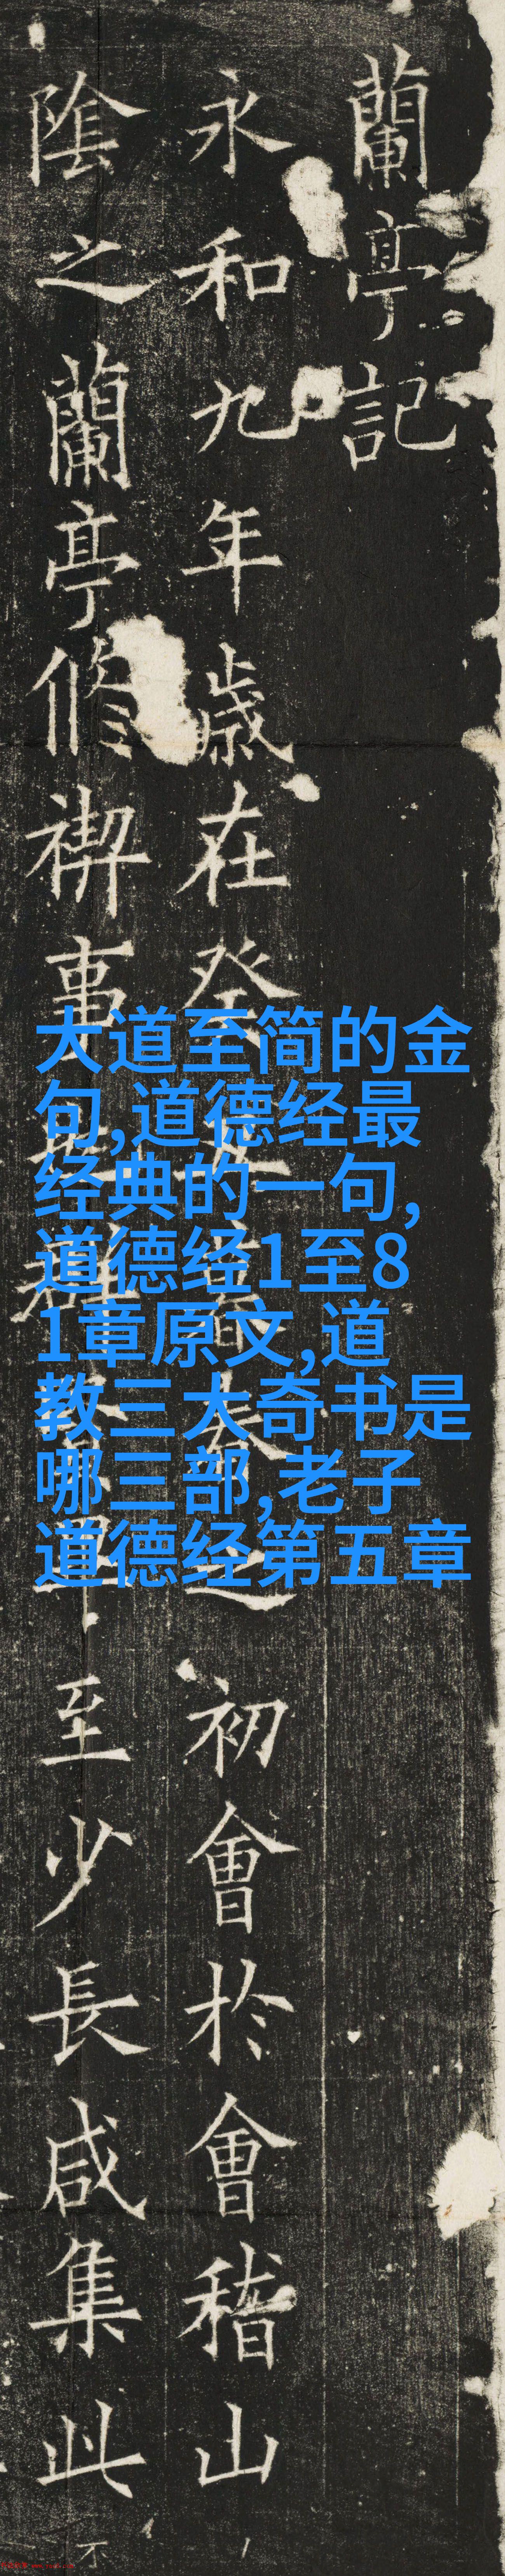 蘭亭記
永和九年歳在癸之初會於會稽山
陰之蘭亭脩禊事至少長咸集此
大道至简的金
句,道德经最
经典的一句,
道德经1至8
1章原文,道
教三大奇书是
哪三部,老子
道德经第五章